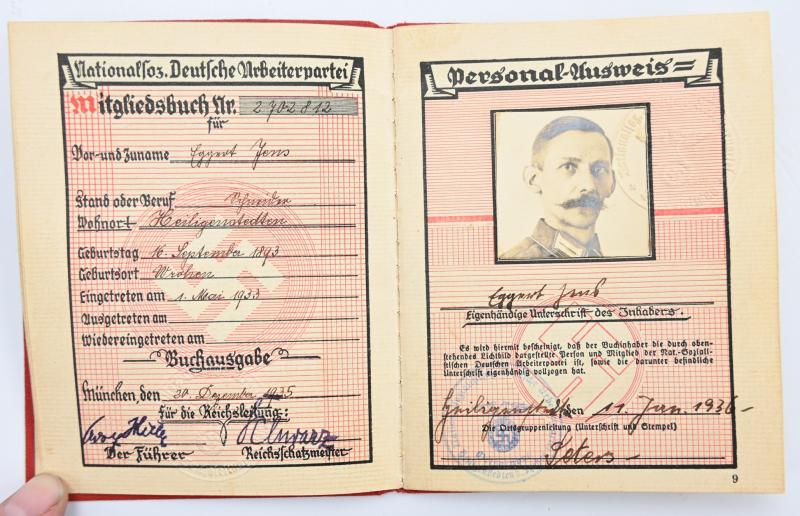 Nationalsoz. Deutsche Arbeiterpartei
Mitgliedsbuch Nr. 2702812
für
Vor- und Zuname Eggert Jens
Stand oder Beruf Schneider
Wohnort Heiligenstedten
Geburtstag 16. September 1893
Geburtsort Wrohen
Eingetreten am 1. Mai 1933
Ausgetreten am
Wiedereingetreten am
Buchausgabe
München, den 20. Dezember 1935
Für die Reichsleitung:
Der Führer Reichsschatzmeister
Personal-Ausweis
Eggert Jens
Eigenhändige Unterschrift des Inhabers.
Es wird hiermit bescheinigt, daß der Buchinhaber die durch oben-
stehendes Lichtbild dargestellte Person und Mitglied der Nat.-Soziali-
stischen Deutschen Arbeiterpartei ist, sowie die darunter befindliche
Unterschrift eigenhändig vollzogen hat.
Heiligenstedten 11. Jan. 1936
Die Ortsgruppenleitung (Unterschrift und Stempel)
Peters
9